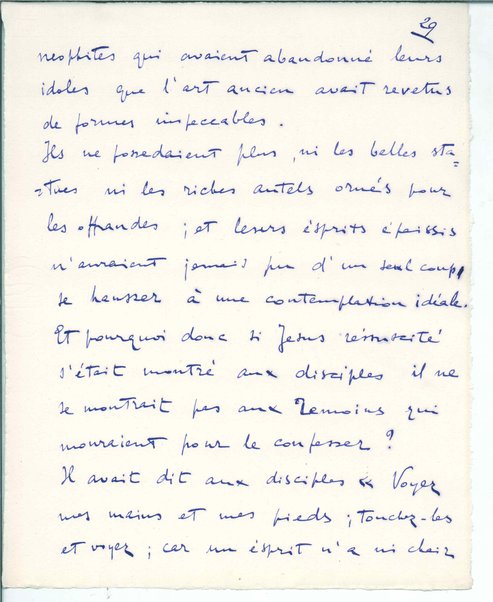 29
neophites qui avaient abandonné leurs
idoles que l'art ancien avait revetus
de formes impeccables.
Ils ne possedaient plus, ni les belles sta=
=tues ni les riches autels ornés pour
les offrandes ; et leurs ésprits épaissis
n'auraient jamais pu d'un seul coup,
se hausser à une contemplation idéale.
Et pourquoi donc si Jesus réssuscité
s'était montré aux disciples il ne
se montrait pas aux Temoins qui
mouraient pour le confesser ?
Il avait dit aux disciples « Voyez
mes mains et mes pieds ; touchez-les
et voyez ; car un ésprit n'a ni chair